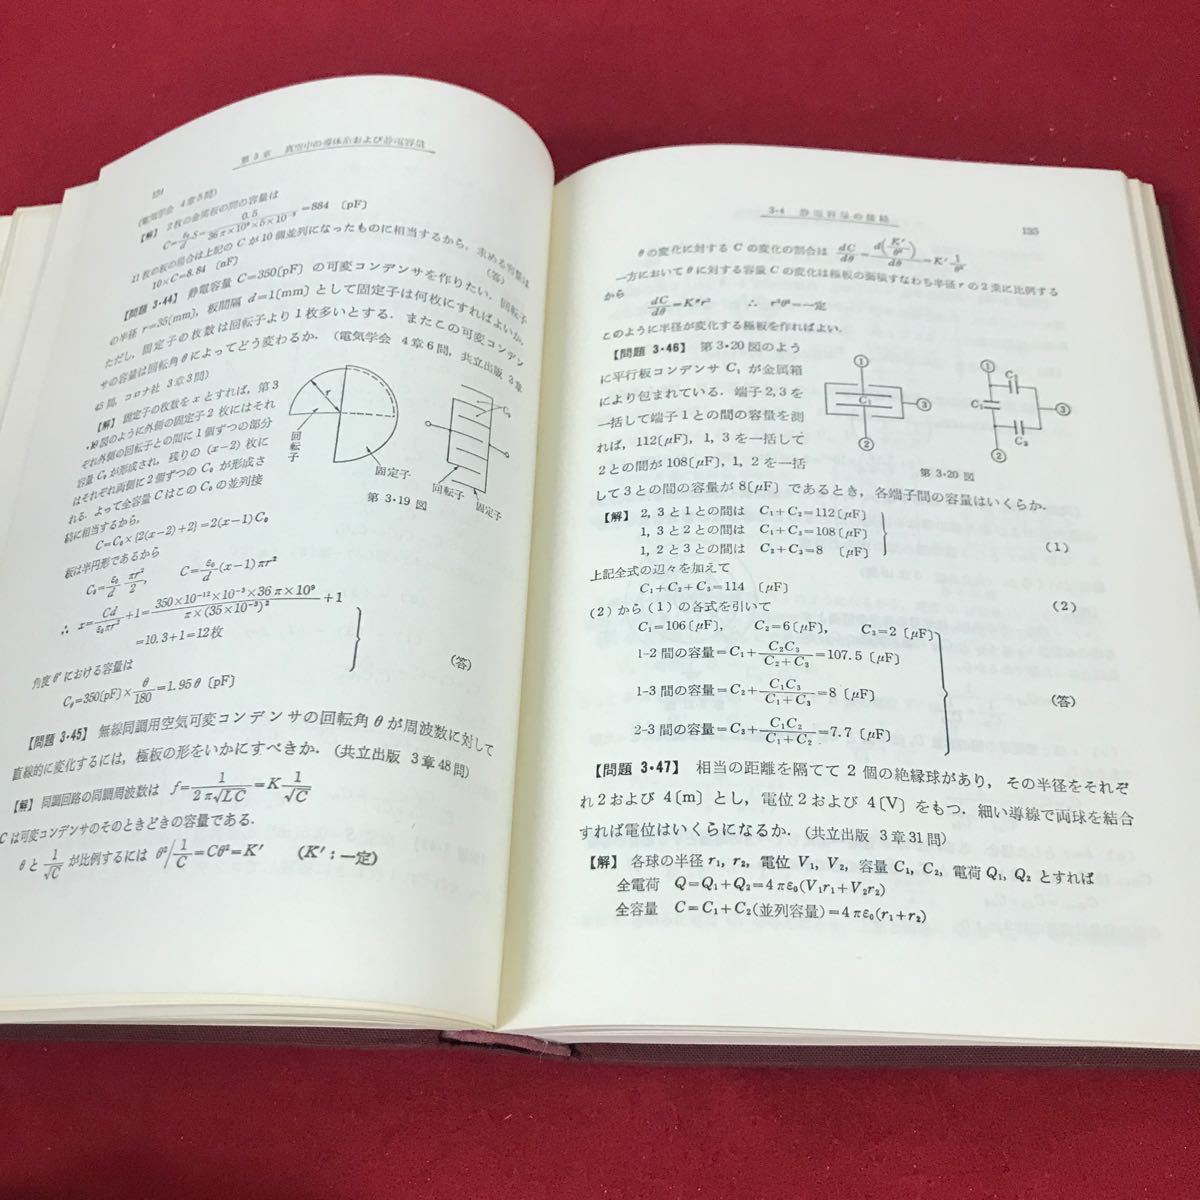 第3章 真空中の導体系および静電容量
134
(電気学会 4章5問)
【解】 2枚の金属板の間の容量は
C=ε₀/d S=0.5/(36π×10⁹×5×10⁻³)=884 〔pF〕
11枚の板の場合は上記のCが10個並列になったものに相当するから,求める容量は
10×C=8.84 〔nF〕 (答)
【問題 3・44】 静電容量 C=350〔pF〕の可変コンデンサを作りたい.回転子
の半径 r=35〔mm〕,板間隔 d=1〔mm〕として固定子は何枚にすればよいか.
ただし,固定子の枚数は回転子より1枚多いとする.またこの可変コンデン
サの容量は回転角θによってどう変わるか.(電気学会 4章6問,共立出版 3章
45問,コロナ社 3章3問)
【解】 固定子の枚数をxとすれば,第3
・19図のように外側の固定子2枚にはそれ
ぞれ外側の回転子との間に1個ずつの部分
容量C₀が形成され,残りの(x-2)枚に
はそれぞれ両側に2個ずつのC₀が形成さ
れる.よって全容量CはこのC₀の並列接
続に相当するから,
C=C₀×{2(x-2)+2}=2(x-1)C₀
板は半円形であるから
C₀=ε₀/d πr²/2, C=ε₀/d(x-1)πr²
∴ x=Cd/ε₀πr²+1=350×10⁻¹²×10⁻³×36π×10⁹/π×(35×10⁻³)²+1
=10.3+1=12枚
(答)
角度θ°における容量は
Cθ=350〔pF〕×θ/180=1.95θ〔pF〕
r
回転子
固定子
C₀
回転子
固定子
第3・19図
【問題 3・45】 無線同調用空気可変コンデンサの回転角θが周波数に対して
直線的に変化するには,極板の形をいかにすべきか.(共立出版 3章48問)
【解】 同調回路の同調周波数は f=1/2π√LC=K 1/√C
Cは可変コンデンサのそのときどきの容量である.
θと1/√Cが比例するには θ²/1/C=Cθ²=K′ (K′:一定)
3・4 静電容量の接続
135
θの変化に対するCの変化の割合は dC/dθ=d(K′/θ²)/dθ=K″1/θ³
一方においてθに対する容量Cの変化は極板の面積すなわち半径rの2乗に比例する
から
dC/dθ=K‴r² ∴ r²θ³=一定
このように半径が変化する極板を作ればよい.
【問題 3・46】 第3・20図のよう
に平行板コンデンサC₁が金属箱
により包まれている.端子2,3を
一括して端子1との間の容量を測
れば,112〔μF〕,1,3を一括して
2との間が108〔μF〕,1,2を一括
して3との間の容量が8〔μF〕であるとき,各端子間の容量はいくらか.
①
C₁
③
②
①
C₂
C₁
③
C₃
②
第3・20図
【解】 2,3と1との間は C₁+C₂=112〔μF〕
1,3と2との間は C₁+C₃=108〔μF〕
1,2と3との間は C₂+C₃=8 〔μF〕
(1)
上記全式の辺々を加えて
C₁+C₂+C₃=114 〔μF〕
(2)
(2)から(1)の各式を引いて
C₁=106〔μF〕, C₂=6〔μF〕, C₃=2〔μF〕
1-2間の容量=C₁+C₂C₃/C₂+C₃=107.5〔μF〕
1-3間の容量=C₂+C₁C₃/C₁+C₃=8〔μF〕
(答)
2-3間の容量=C₃+C₁C₂/C₁+C₂=7.7〔μF〕
【問題 3・47】 相当の距離を隔てて2個の絶縁球があり,その半径をそれぞ
れ2および4〔m〕とし,電位2および4〔V〕をもつ.細い導線で両球を結合
すれば電位はいくらになるか.(共立出版 3章31問)
【解】 各球の半径r₁, r₂,電位V₁, V₂,容量C₁, C₂,電荷Q₁, Q₂とすれば
全電荷 Q=Q₁+Q₂=4πε₀(V₁r₁+V₂r₂)
全容量 C=C₁+C₂(並列容量)=4πε₀(r₁+r₂)